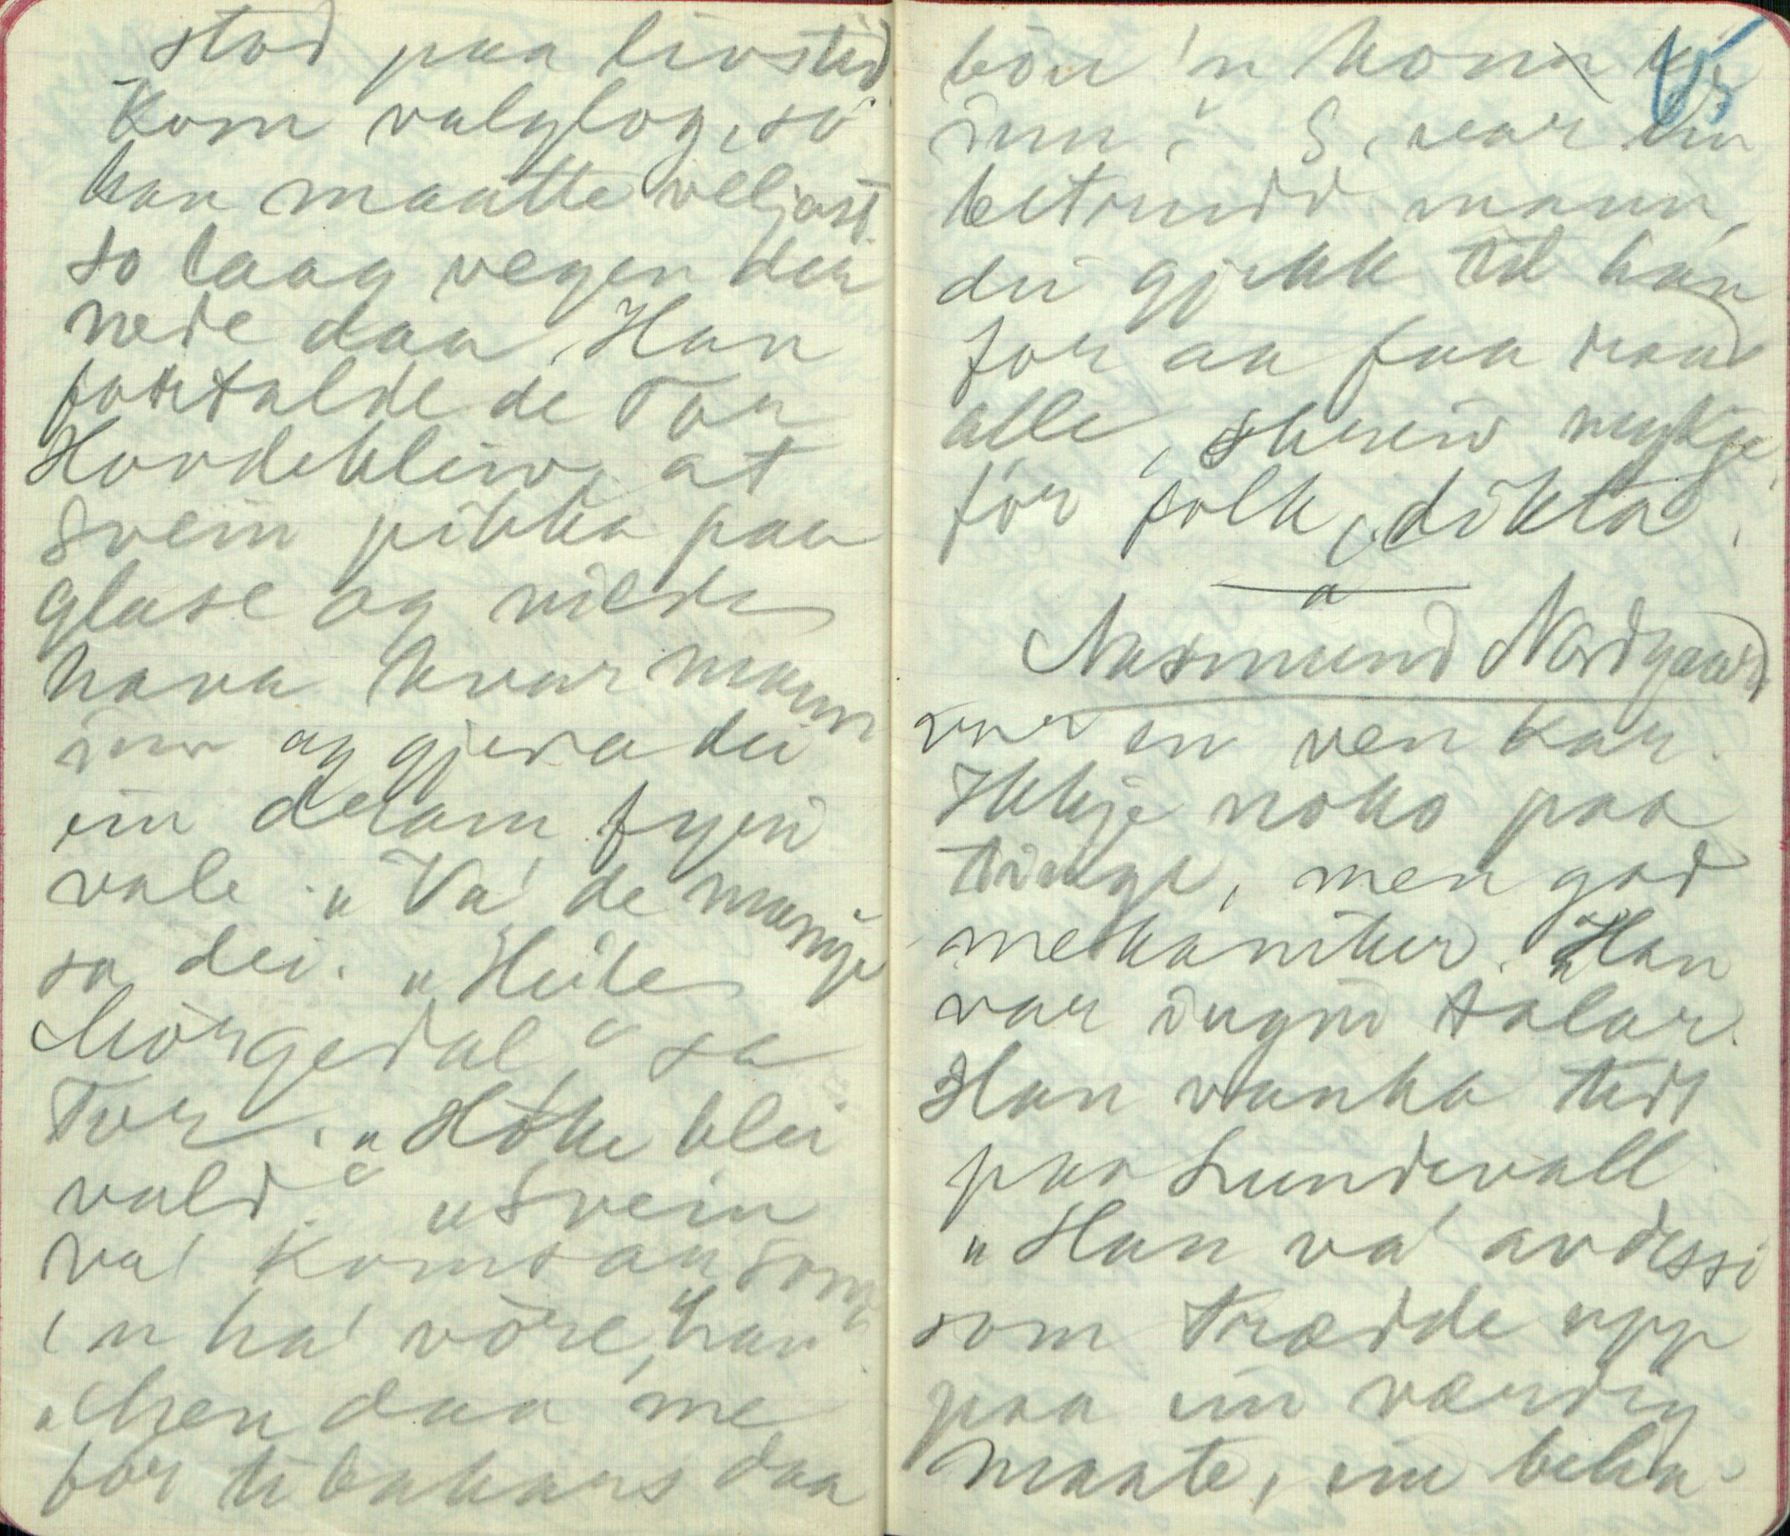 stod paa livstid
Kom valglog, so
han maatte veljast
so laag vegen den
nede daa. Han
fortalde de Tor
Hovdekleiv, at
Svein pikka paa
glase og vilde
hava kvar mann
inn og gjera dei
ein delam fyri
vale. "Va' de mange
sa dei. "Heile
Mórgedal" sa
Tor. "Hoke blei
vald." "Svein
va' komsan som
'n ha' vore," han
"Men daa me
fór tibakars daa
65
bón 'n honn
inn." S. var ein
betrudd mann,
dei gjekk til han
for aa faa raad
alle, skreiv mykje
fór folk, dikta.
Aasmund Nordgaard
var en ven kar.
Ikkje noko paa
tinge, men god
mekaniker. Han
var ingin talar.
Han vanka tidt
paa Lundevall
"Han va' av dessi
som trædde upp
paa ein værdig
maate, ein beha-